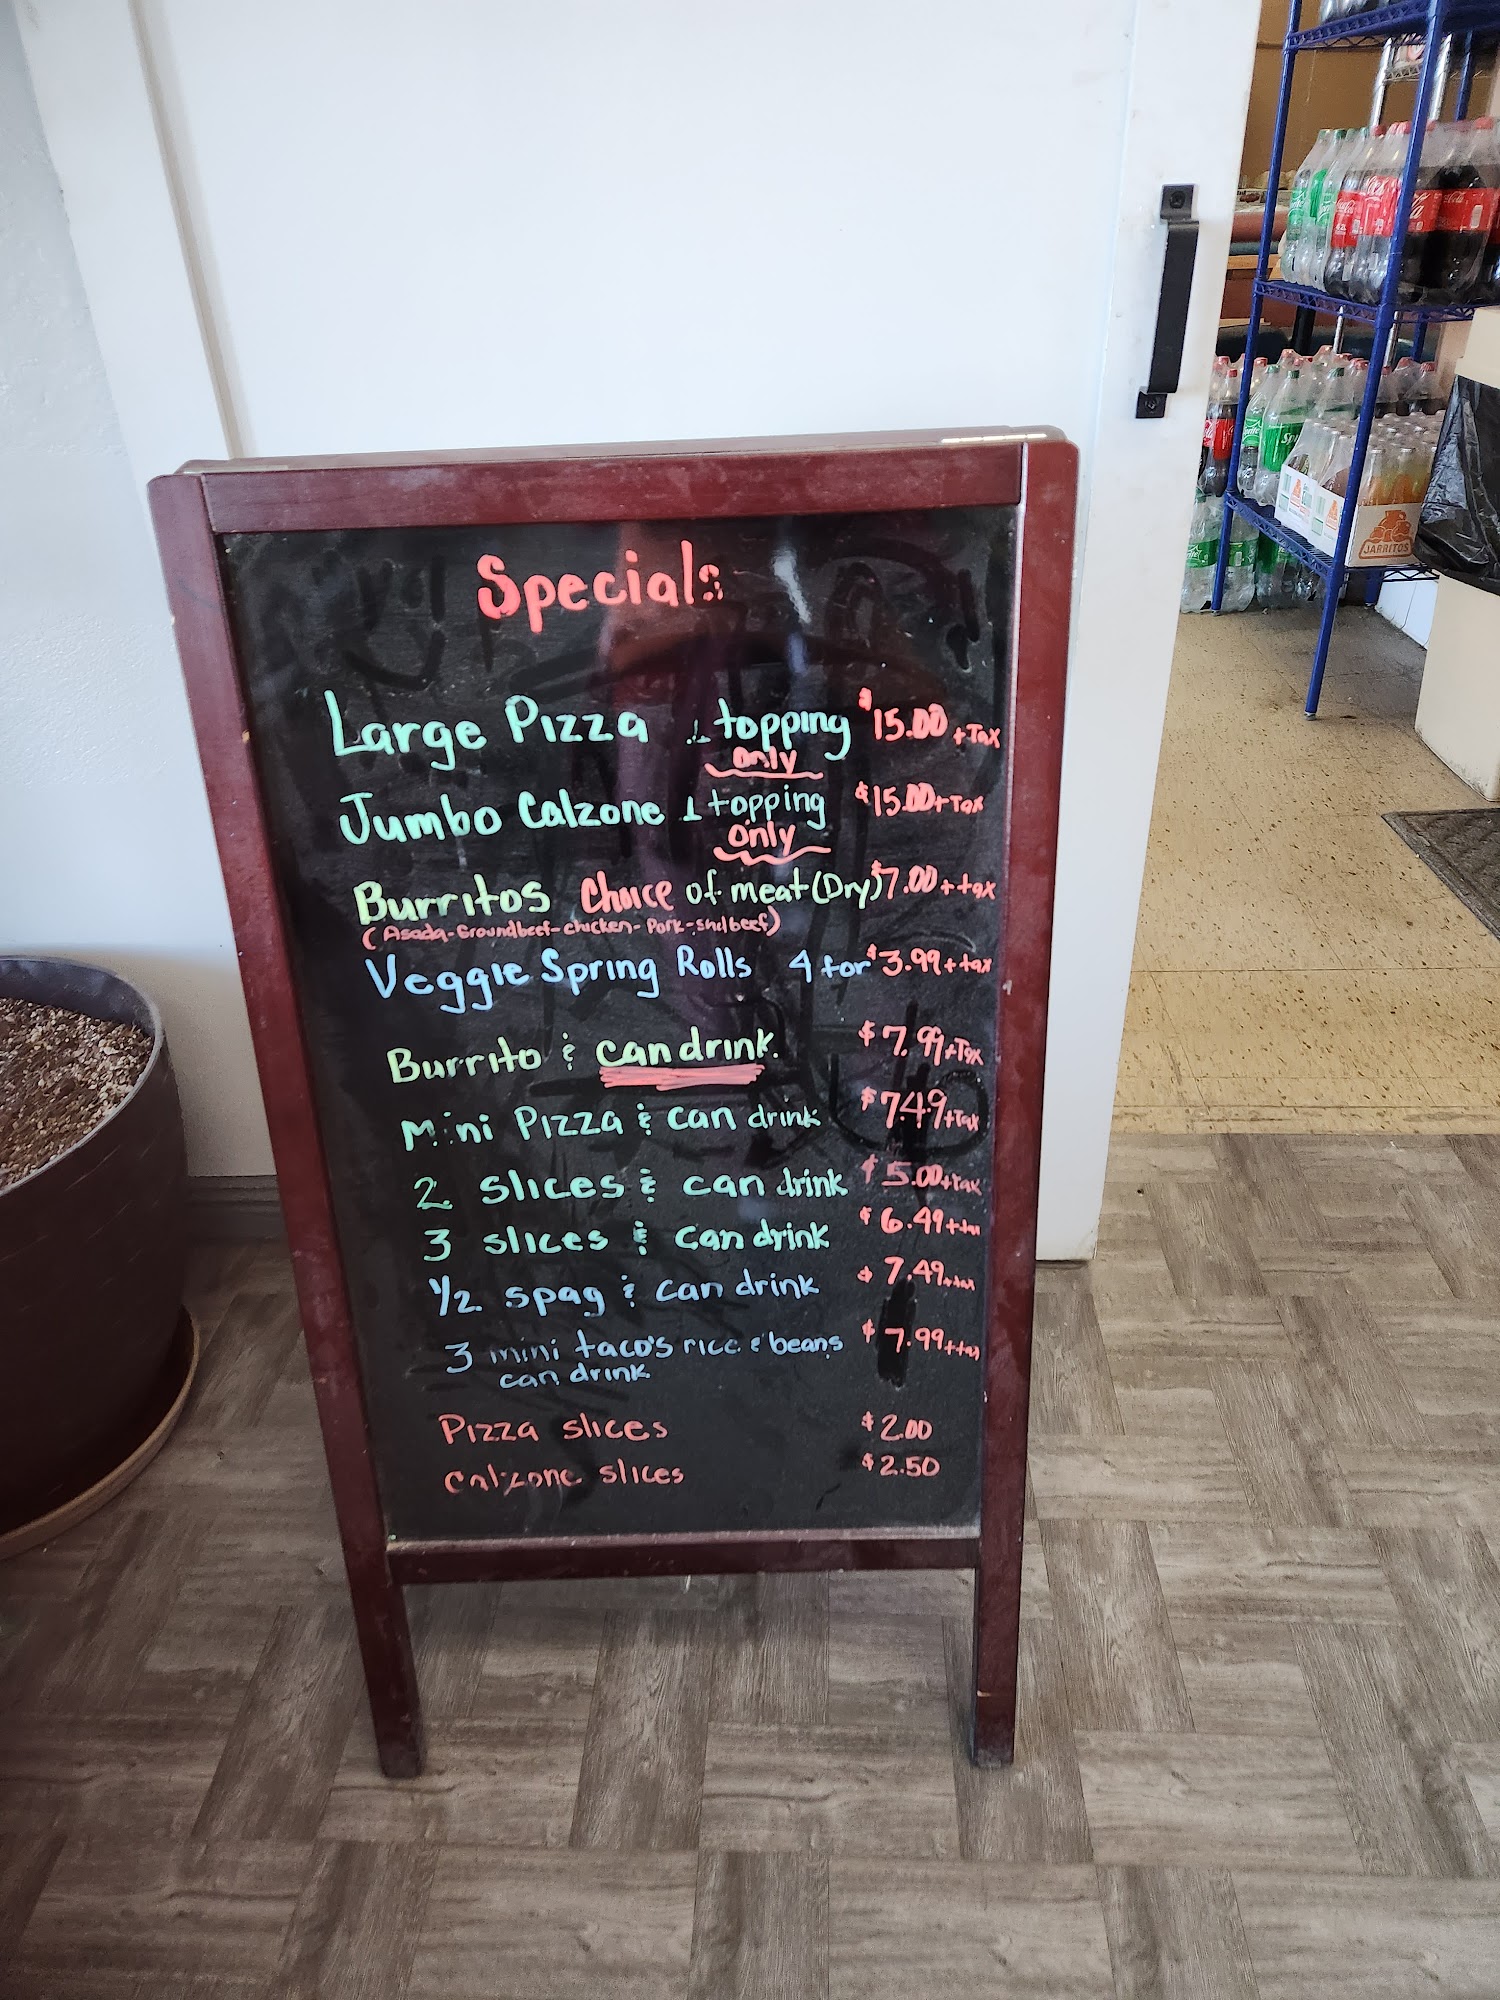 Specials
Large Pizza 1 topping $15.00 + Tax
only
Jumbo Calzone 1 topping $15.00 + Tax
Only
Burritos Choice of meat (Dry) $7.00 + tax
(Asada - Groundbeef - chicken - Pork - shdbeef)
Veggie Spring Rolls 4 for $3.99 + tax
Burrito & can drink. $7.99 + Tax
Mini Pizza & can drink $7.49 + Tax
2 slices & can drink $5.00 + tax
3 slices & can drink $6.49 + tax
1/2 spag & can drink $7.49 + tax
3 mini taco's rice & beans $7.99 + tax
can drink
Pizza slices $2.00
Calzone slices $2.50
JARRITOS